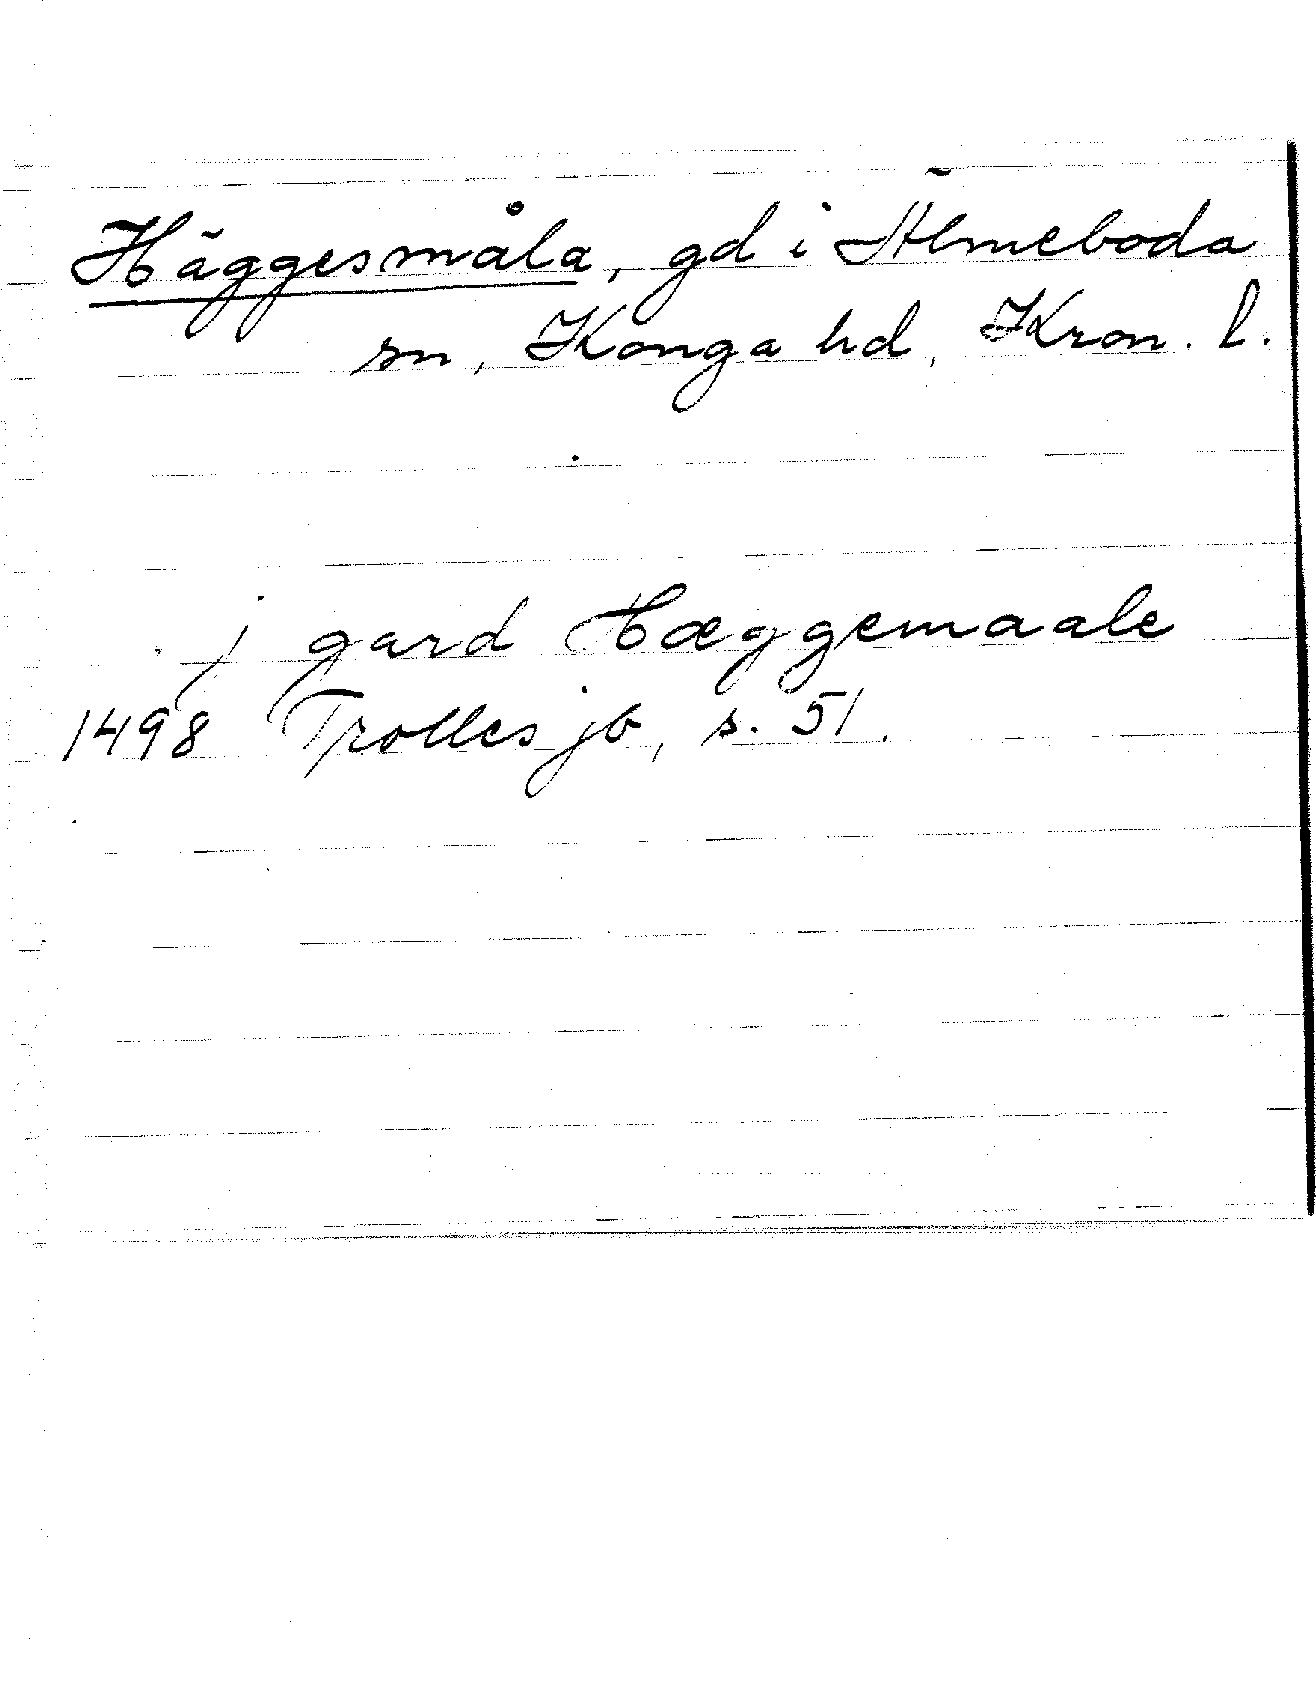 Häggesmåla, gd i Älmeboda
sn, Konga hd, Kron. l.
j gard Hæggemaale
1498 Trolles jb, s. 51.